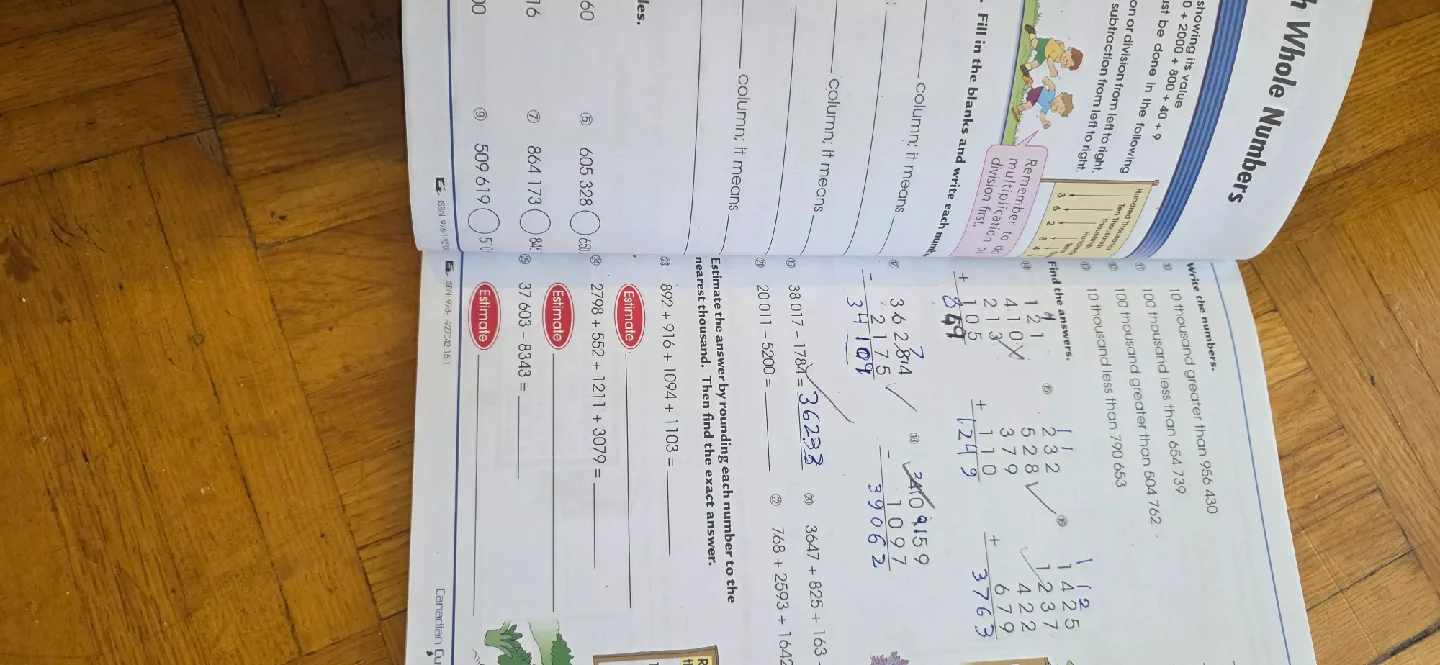 h Whole Numbers
showing its value
0 + 2000 + 800 + 40 + 9
ust be done in the following
on or division from left to right.
subtraction from left to right.
Remember to
multiplication
division first.
Fill in the blanks and write each
column; it means
column; it means
column; it means
les.
60 ⑤ 605 328
16 ⑦ 864 173
00 ⑨ 509 619
Write the numbers.
⑩ 10 thousand greater than 956 430
⑪ 100 thousand less than 654 739
⑫ 100 thousand greater than 504 762
⑬ 10 thousand less than 790 653
Find the answers.
⑭ 121
410
213
+ 105
849
⑮ 11
232
528
379
+ 110
1249
⑯ 112
1425
1237
422
+ 679
3763
⑰ 36284
- 2175
34109
⑱ 40159
- 1097
39062
⑲ 38 017 – 1784 = 36233
⑳ 3647 + 825 + 163
㉑ 20 011 – 5200 =
㉒ 768 + 2593 + 1642
Estimate the answer by rounding each number to the
nearest thousand. Then find the exact answer.
㉓ 892 + 916 + 1094 + 1103 =
Estimate
㉔ 2798 + 552 + 1211 + 3079 =
Estimate
㉕ 37 603 – 8343 =
Estimate
Canadian Cu